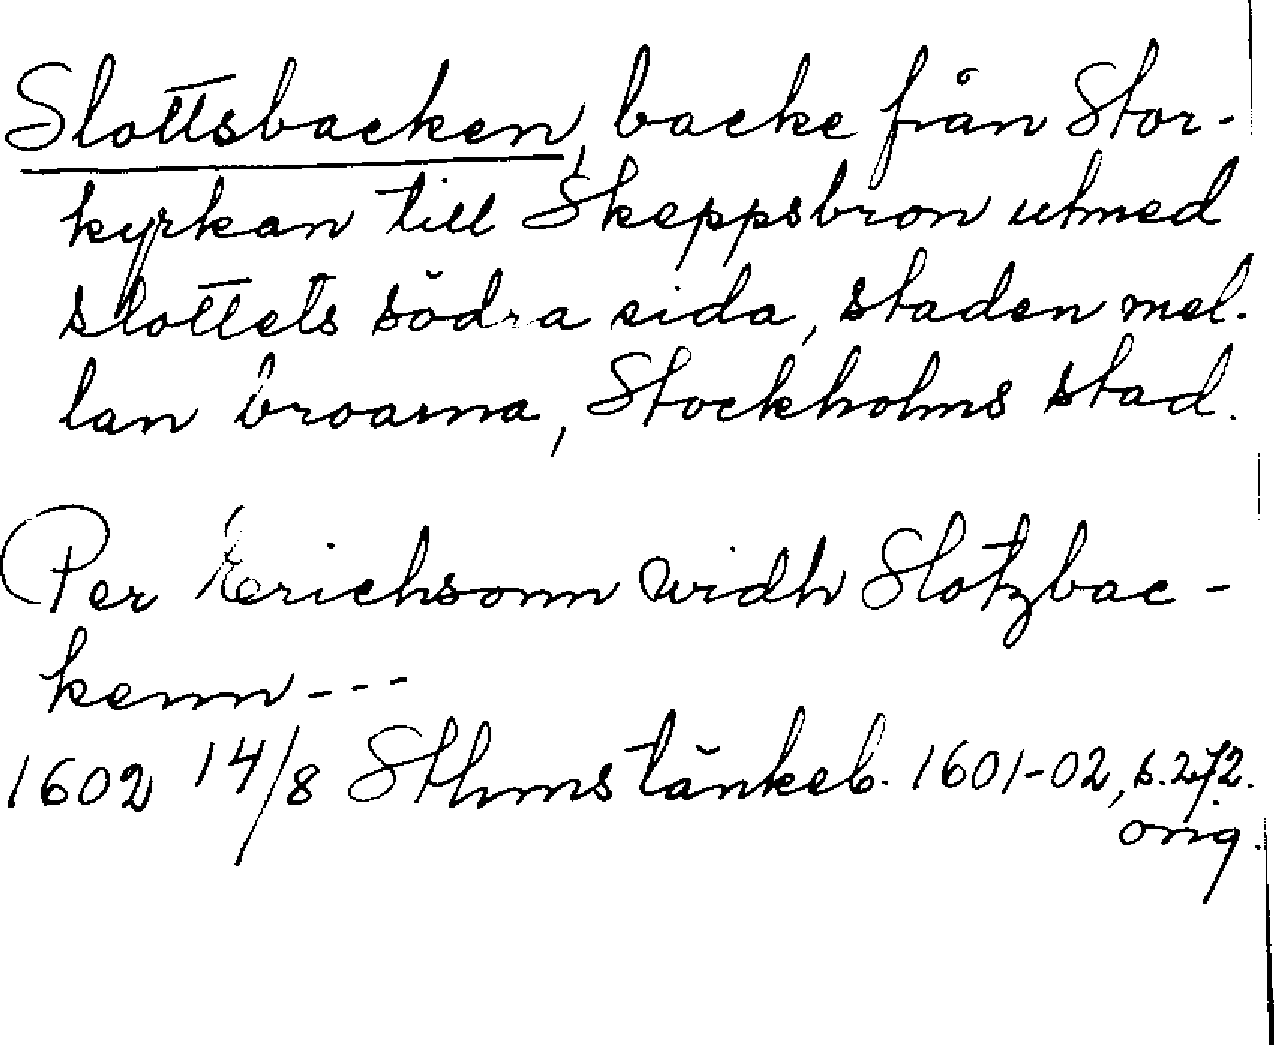 Slottsbacken, backe från Stor-
kyrkan till Skeppsbron utmed
slottets södra sida, staden mel-
lan broarna, Stockholms stad.
Per Erichsonn widh Slotzbac-
kenn---
1602 14/8 Sthms tänkeb. 1601-02, s. 272.
orig.